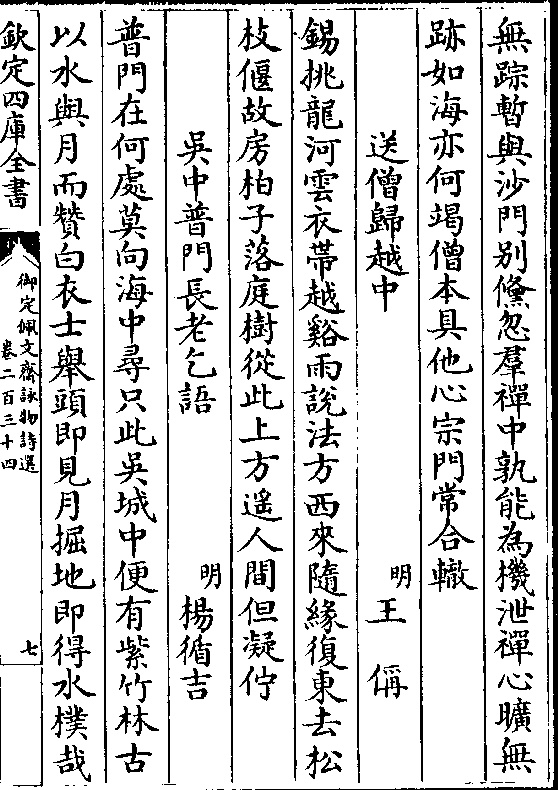 無踪暫與沙門別儵忽羣禪中孰能為機泄禪心曠無
跡如海亦何竭僧本具他心宗門常合轍
送僧歸越中
明王偁
錫挑龍河雲衣帶越谿雨說法方西來隨緣復東去松
枝偃故房柏子落庭樹從此上方遙人間但凝佇
吳中普門長老乞語
明楊循吉
普門在何處莫向海中尋只此吳城中便有紫竹林古
以水與月而贊白衣士舉頭即見月掘地即得水樸哉
欽定四庫全書
御定佩文齋詠物詩選
卷二百三十四
七